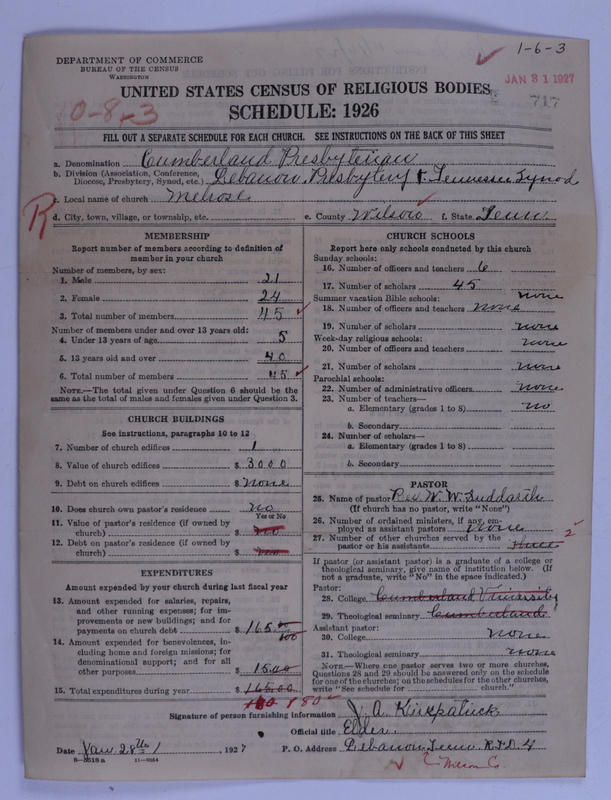 1-6-3
DEPARTMENT OF COMMERCE
BUREAU OF THE CENSUS
WASHINGTON
JAN 31 1927
717
0-8-3
UNITED STATES CENSUS OF RELIGIOUS BODIES
SCHEDULE: 1926
FILL OUT A SEPARATE SCHEDULE FOR EACH CHURCH. SEE INSTRUCTIONS ON THE BACK OF THIS SHEET
a. Denomination Cumberland Presbyterian
b. Division (Association, Conference, Diocese, Presbytery, Synod, etc.) Lebanon Presbytery & Tennessee Synod
R
c. Local name of church Melrose
d. City, town, village, or township, etc. e. County Wilson f. State Tenn.
MEMBERSHIP
Report number of members according to definition of
member in your church
Number of members, by sex:
1. Male 21
2. Female 24
3. Total number of members 45
Number of members under and over 13 years old:
4. Under 13 years of age 5
5. 13 years old and over 40
6. Total number of members 45
NOTE.—The total given under Question 6 should be
same as the total of males and females given under Question 3.
CHURCH BUILDINGS
See instructions, paragraphs 10 to 12
7. Number of church edifices 1
8. Value of church edifices $ 3000
9. Debt on church edifices $ none
10. Does church own pastor's residence no
Yes or No
11. Value of pastor's residence (if owned by
church) $ no
12. Debt on pastor's residence (if owned by
church) $
EXPENDITURES
Amount expended by your church during last fiscal year
13. Amount expended for salaries, repairs,
and other running expenses; for im-
provements or new buildings; and for
payments on church debt $ 165.00
14. Amount expended for benevolences, in-
cluding home and foreign missions; for
denominational support; and for all
other purposes 15.00
15. Total expenditures during year $ 165.00
180 180
CHURCH SCHOOLS
Report here only schools conducted by this church
Sunday schools:
16. Number of officers and teachers 6
17. Number of scholars 45
Summer vacation Bible schools: none
18. Number of officers and teachers none
19. Number of scholars none
Week-day religious schools: none
20. Number of officers and teachers
21. Number of scholars none
Parochial schools:
22. Number of administrative officers none
23. Number of teachers—
a. Elementary (grades 1 to 8) no
b. Secondary
24. Number of scholars—
a. Elementary (grades 1 to 8)
b. Secondary
PASTOR
25. Name of pastor Rev W. W. Suddarth
(If church has no pastor, write "None")
26. Number of ordained ministers, if any, em-
ployed as assistant pastors none
27. Number of other churches served by the
pastor or his assistants three 2
If pastor (or assistant pastor) is a graduate of a college or
theological seminary, give name of institution below. (If
not a graduate, write "No" in the space indicated.)
Pastor:
28. College Cumberland University
29. Theological seminary Cumberland
Assistant pastor:
30. College none
31. Theological seminary none
NOTE.—Where one pastor serves two or more churches,
Questions 28 and 29 should be answered only on the schedule
for one of the churches; on the schedules for the other churches,
write "See schedule for church."
Signature of person furnishing information J. A. Kirkpatrick
Official title Elder
Date Jan 28th, 1927 P. O. Address Lebanon Tenn R.F.D. 4
8—5518a 11—9264
Wilson Co.